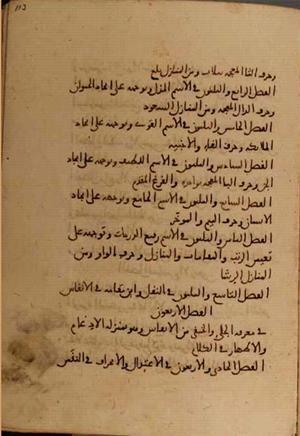 وحرف الثا المعجمه بثلاث ومن المنازل بلع
الفصل الرابع والثلثون في الاسم المذل وتوجهه على ايجاد الحيوان
وحرف الذال المعجمه ومن المنازل السعود
الفصل الخامس والثلثون في الاسم القوى وتوجهه على ايجاد
الملائكه وحرف الفا والاخبيه
الفصل السادس والثلثون في الاسم اللطيف وتوجهه على ايجاد
الجن وحرف البا المعجمه بواحده والفرغ المقدم
الفصل السابع والثلثون في الاسم الجامع وتوجهه على ايجاد
الانسان وحرف الميم والموخر
الفصل الثامن والثلثون في الاسم رفيع الدرجات وتوجهه على
تعيين الرتب والمقامات والمنازل وحرف الواو ومن
المنازل الرشا
الفصل التاسع والثلثون في النقل واين مقامه في الانفاس
الفصل الاربعون
في معرفه الجلى والخفى من الانفاس وهو بمنزله الادغام
والاظهار في الكلام
الفصل الحادى والاربعون في الاعتدال والانحراف في النفس